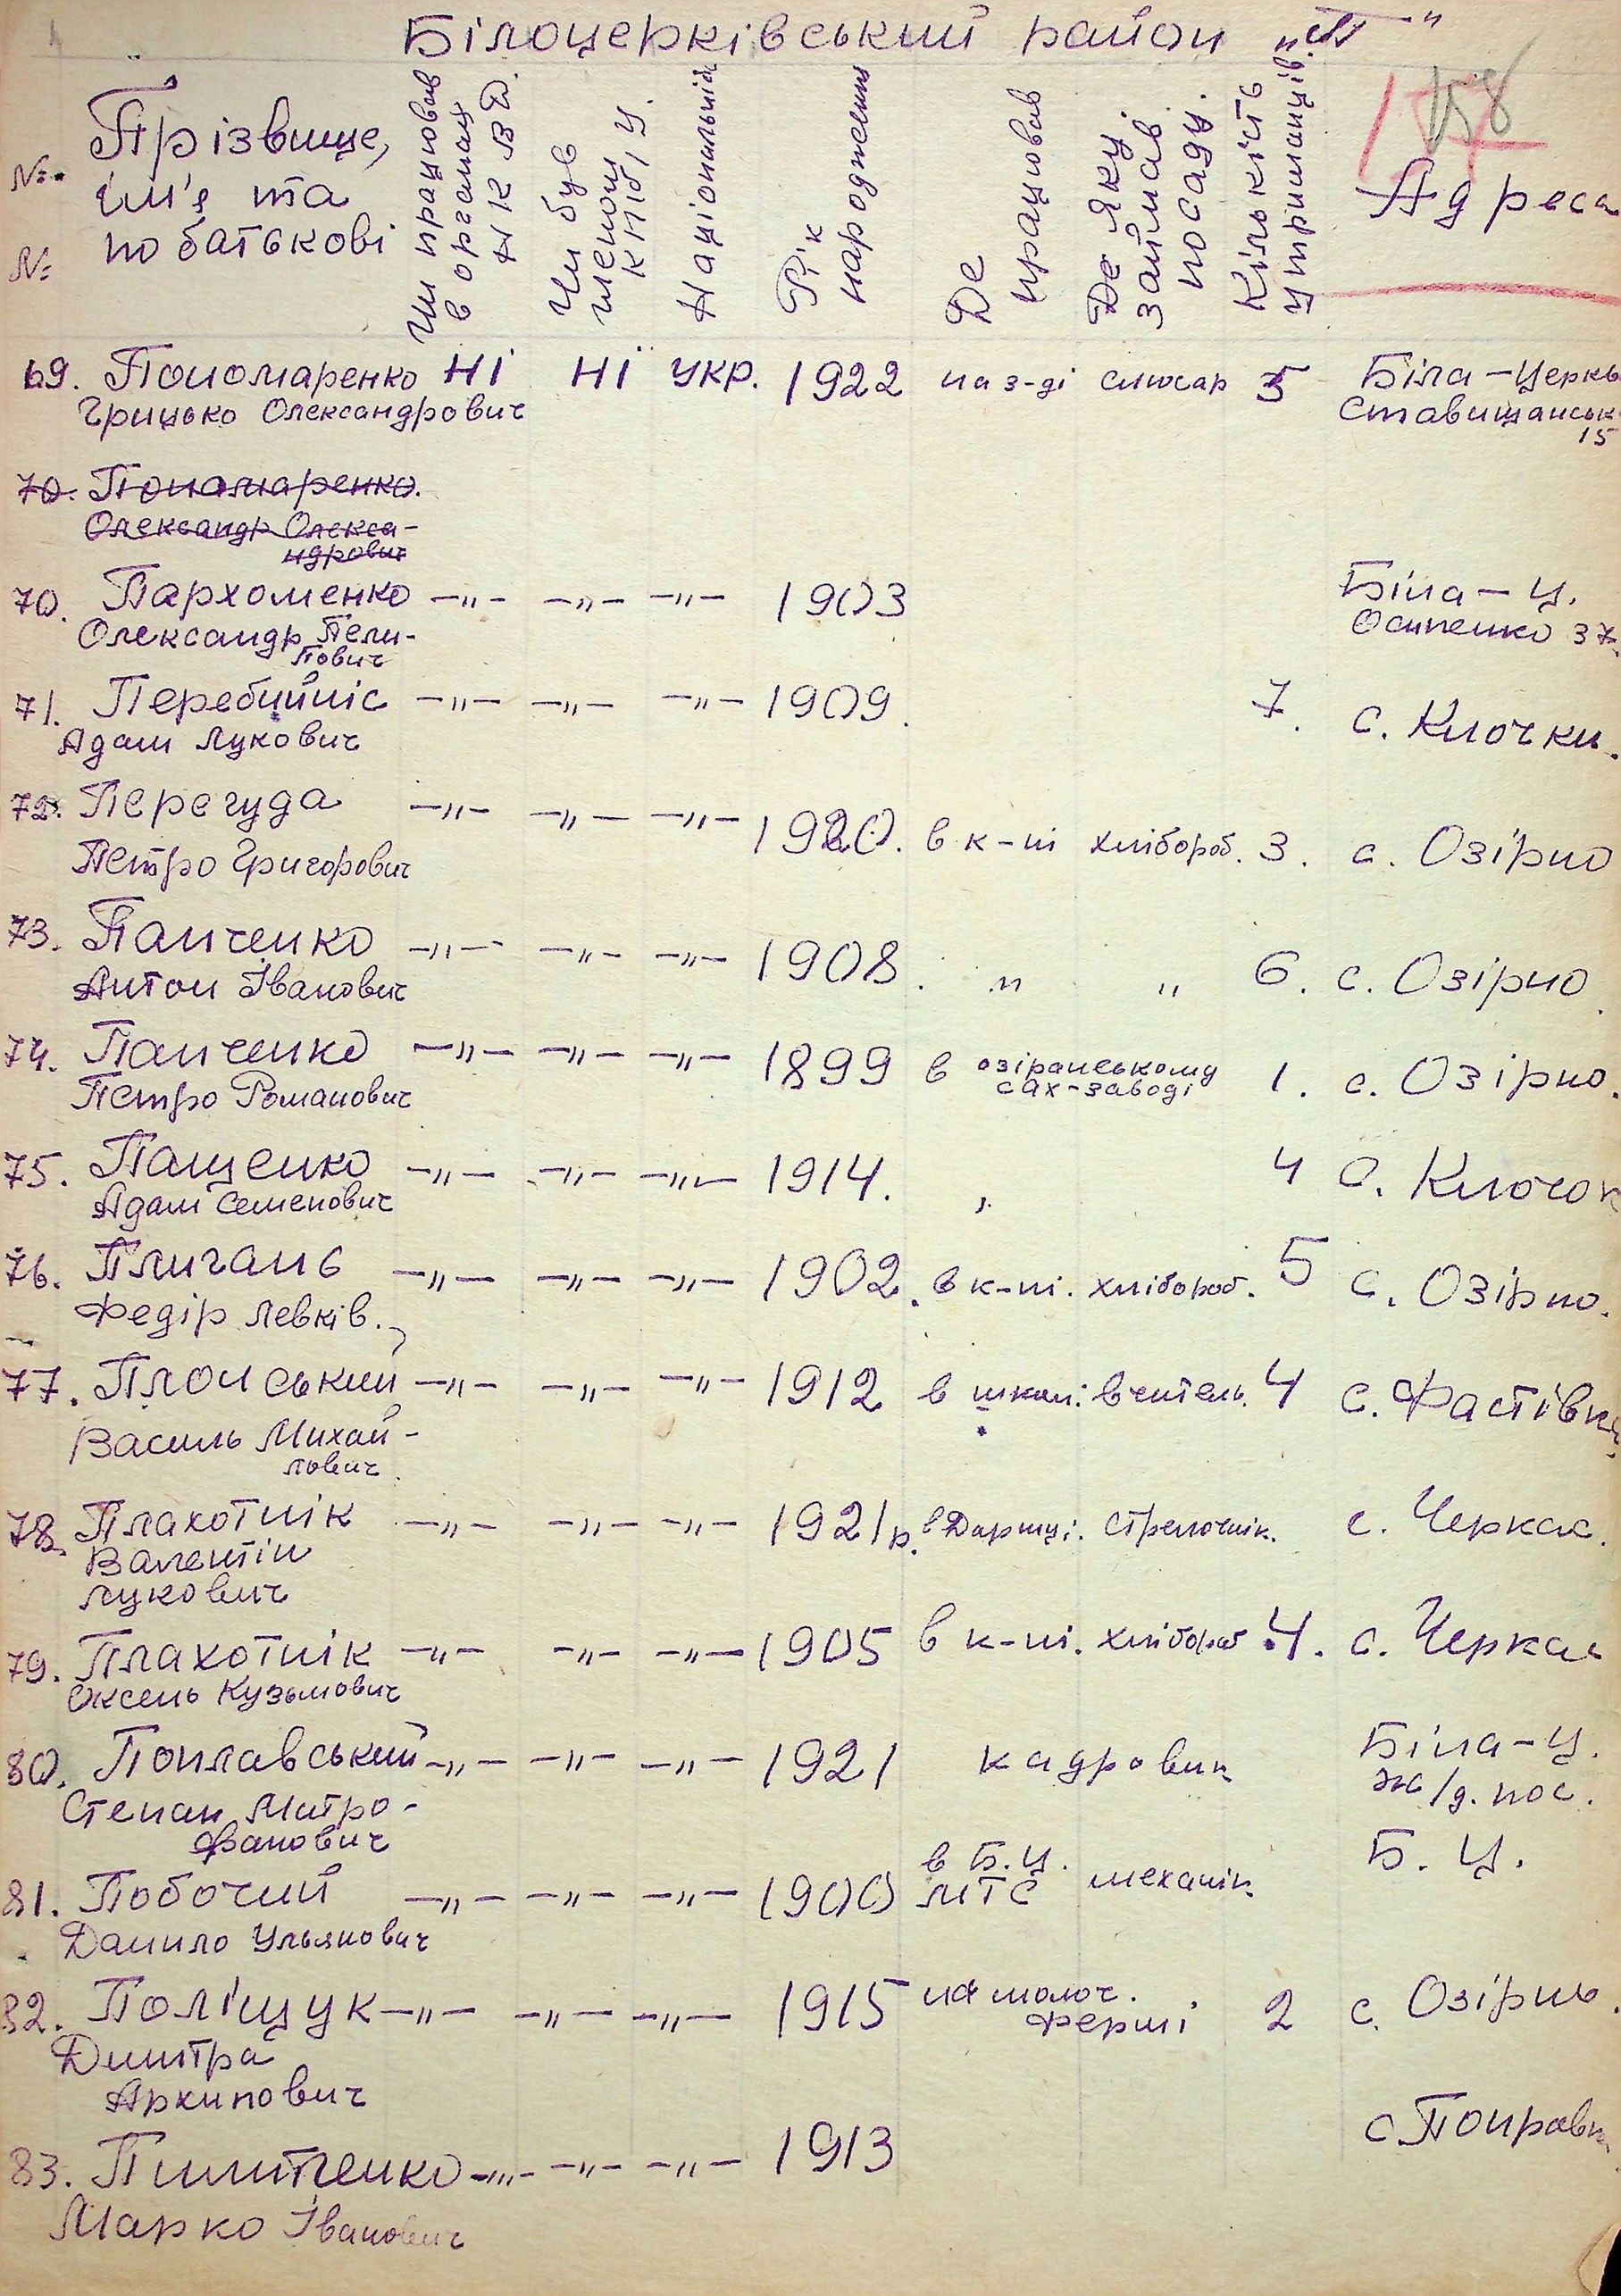 Білоцерківський район „П"
158
№ №
Прізвище, ім'я та по батькові
Чи працював в органах НКВД.
Чи був членом КПб/У.
Національність
Рік народження
Де працював
Де яку займав посаду.
Кількість утриманців.
Адреса
69. Пономаренко ні ні укр. 1922 на з-ді слюсар 5 Біла-Церкв
Грицько Олександрович Ставищанськ
15
70. Пономаренко.
Олександр Олекса-
ндрович
70. Пархоменко —„— —„— —„— 1903 Біла-Ц.
Олександр Пели- Осипенко 37.
пович
71. Перебийніс —„— —„— —„— 1909. 7. с. Клочки.
Адам Лукович
72. Перегуда —„— —„— —„— 1920. в к-пі хлібороб. 3. с. Озірно
Петро Григорович
73. Панченко —„— —„— —„— 1908. „ „ 6. с. Озірно.
Антон Іванович
74. Панченко —„— —„— —„— 1899 в озіранському 1. с. Озірно.
Петро Романович сах-заводі
75. Пащенко —„— —„— —„— 1914. „ 4 с. Клочок
Адам Семенович
76. Плигань —„— —„— —„— 1902. в к-пі. хлібороб. 5 с. Озірно.
Федір Левків.
77. Плонський —„— —„— —„— 1912 в школі. вчитель. 4 с. Фастівка
Василь Михай-
лович.
78. Плахотнік —„— —„— —„— 1921р. в Дарниці. стрелочнік. с. Черкас.
Валентін
Лукович
79. Плахотнік —„— —„— —„— 1905 в к-пі. хлібороб 4. с. Черкас
Оксень Кузьмович
80. Поплавський —„— —„— —„— 1921 кадровик Біла-Ц.
Степан Митро- ж/д. пос.
фанович
81. Побочий —„— —„— —„— 1900 в Б.Ц. МТС механік Б. Ц.
Данило Ульянович
82. Поліщук —„— —„— —„— 1915 на молоч. 2 с. Озірно.
Дмитра фермі
Архипович
83. Пилипенко —„— —„— —„— 1913 с. Поправк
Марко Іванович